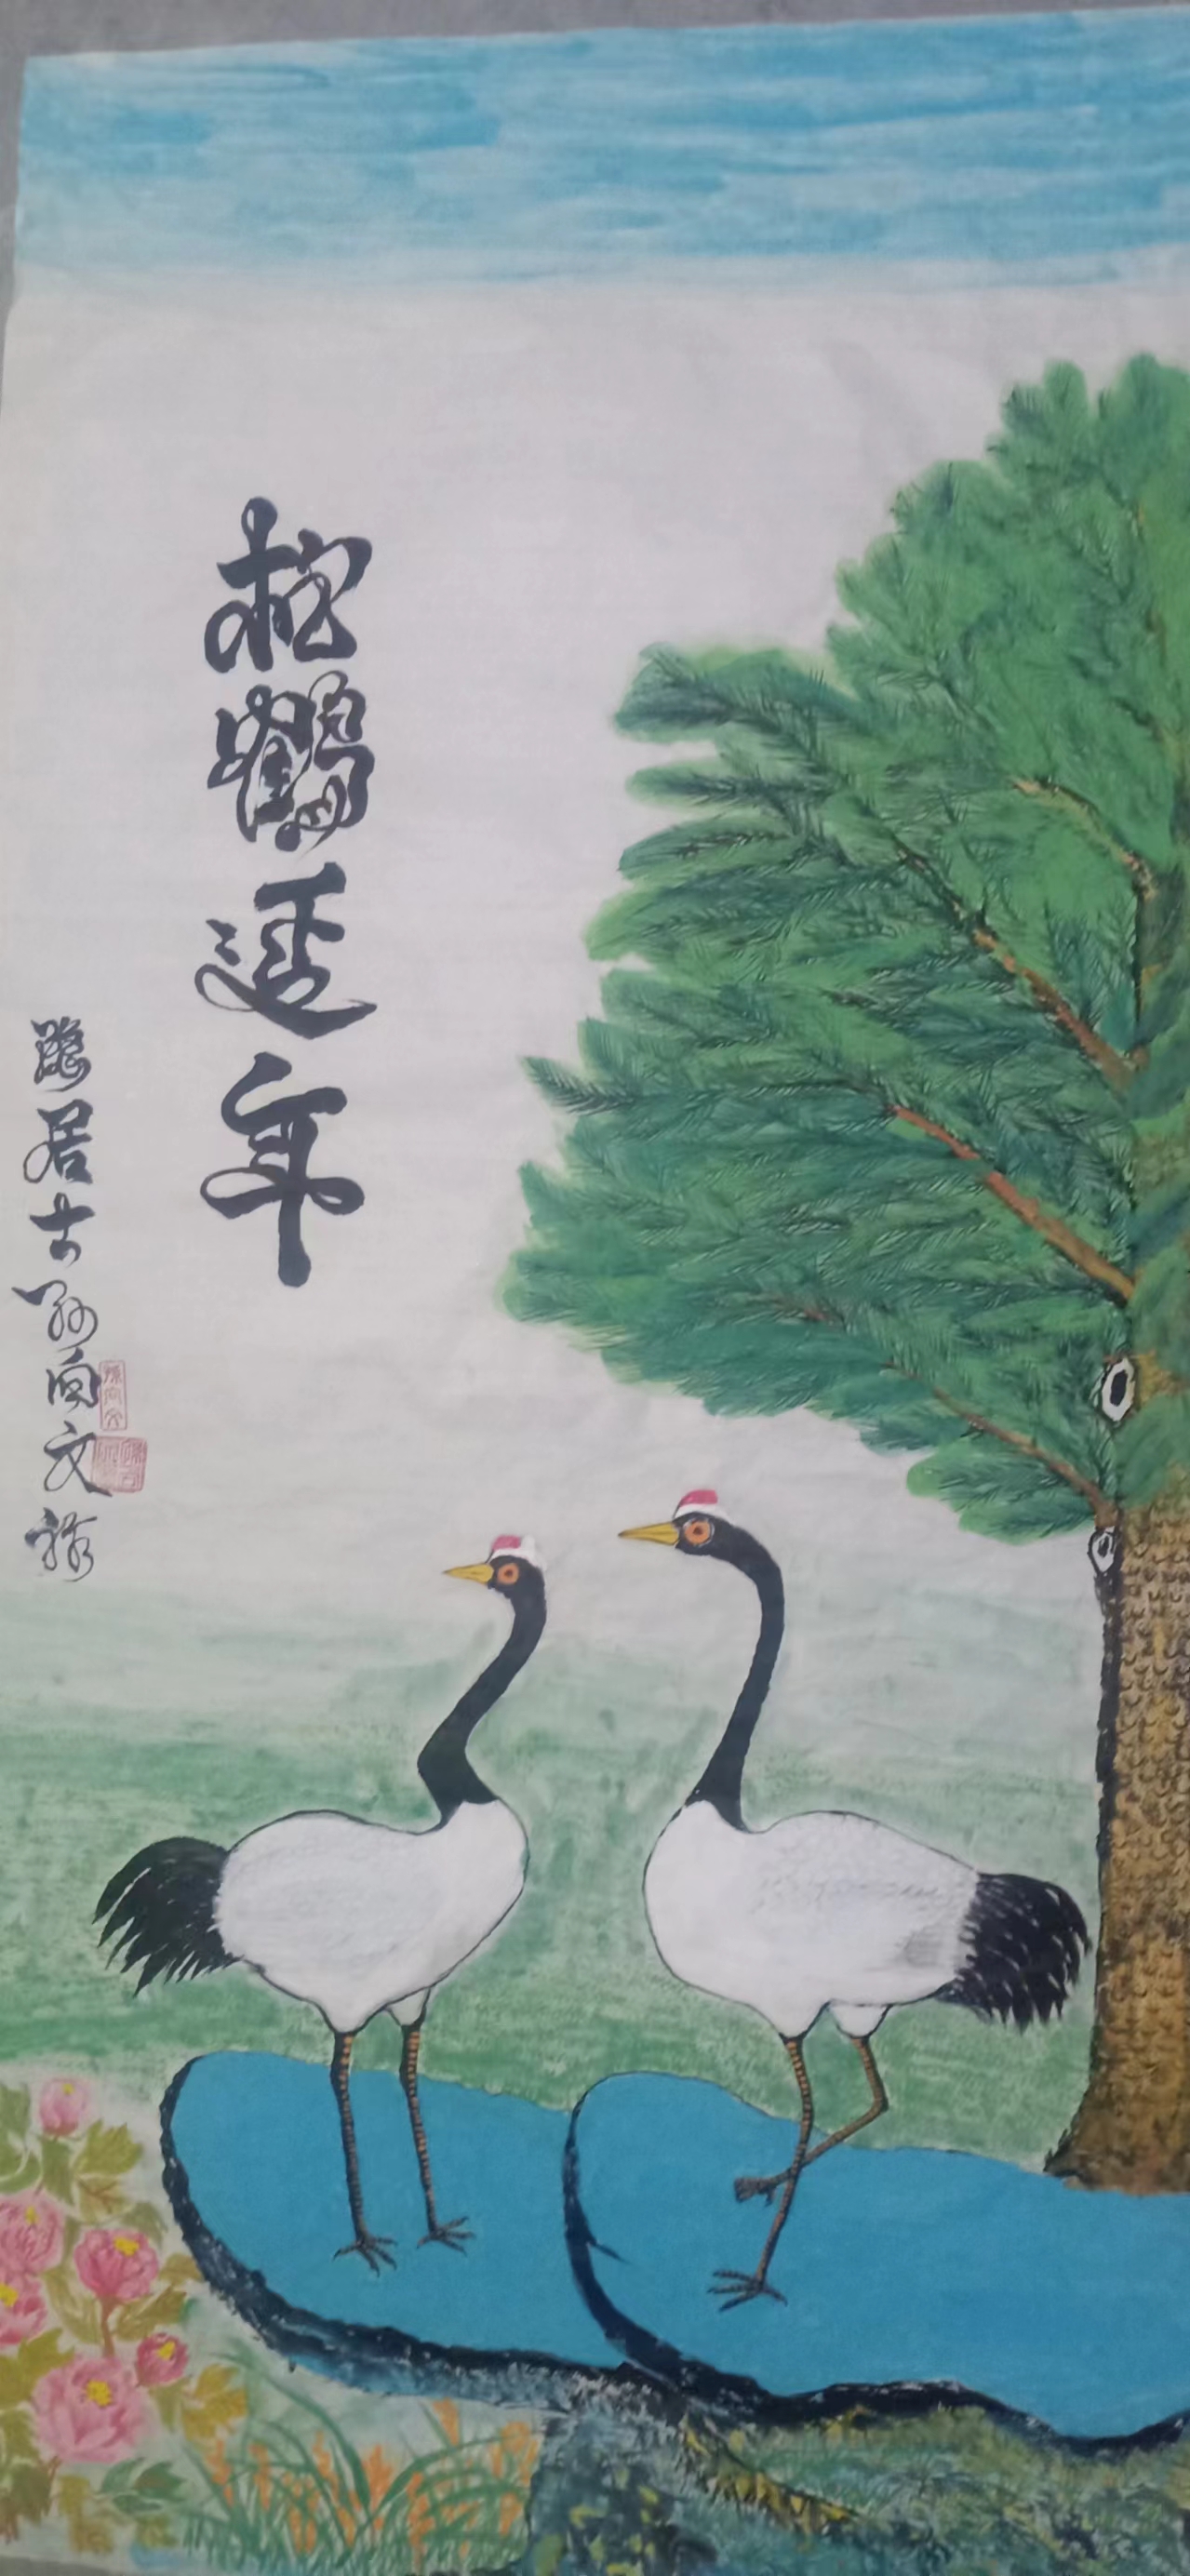 松鹤延年
隐居士孙向文